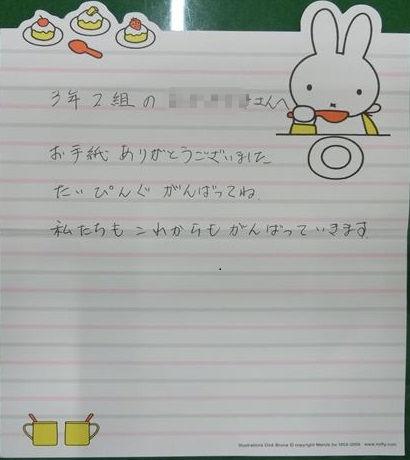 3年2組の さんへ
お手紙 ありがとうございました
たいぴんぐ がんばってね.
私たちも これからも がんばっていきます.
Illustrations Dick Bruna © copyright Mercis bv 1953-2009 www.miffy.com